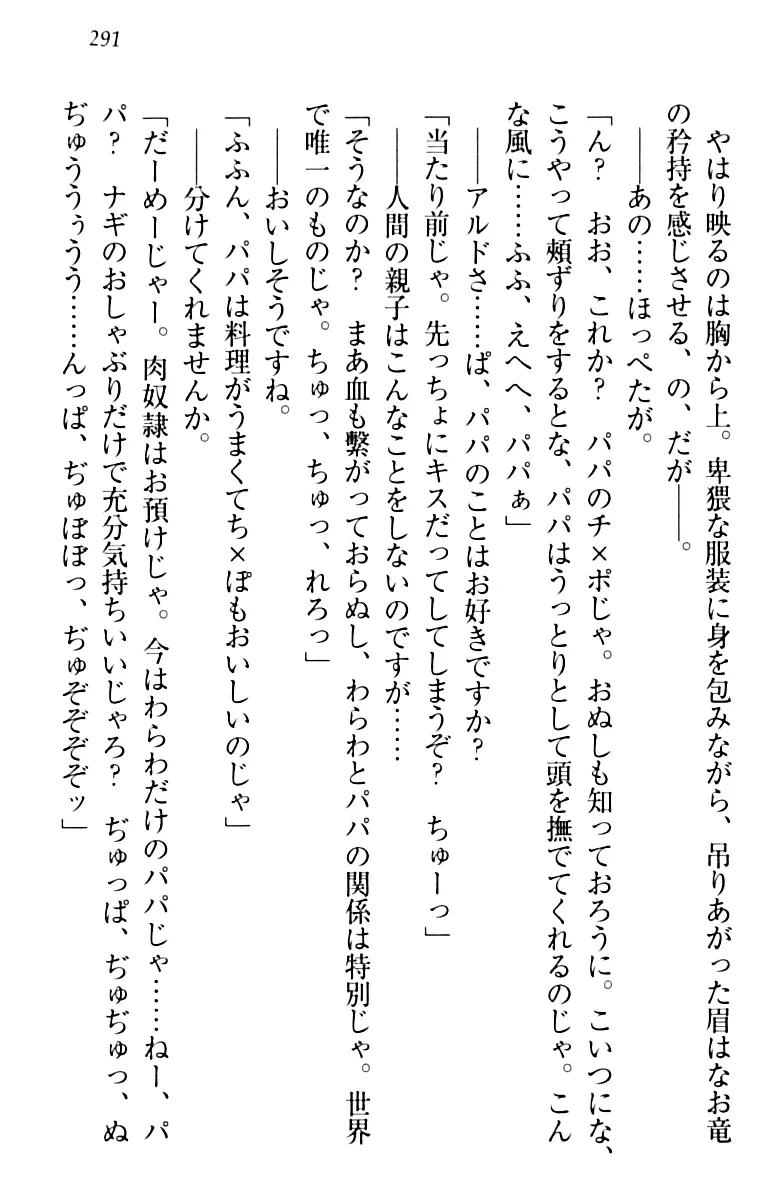 291
やはり映るのは胸から上。卑猥な服装に身を包みながら、吊りあがった眉はなお竜
の矜持を感じさせる、の、だが――。
――あの……ほっぺたが。
「ん？　おお、これか？　パパのチ×ポじゃ。おぬしも知っておろうに。こいつにな、
こうやって頬ずりをするとな、パパはうっとりとして頭を撫でてくれるのじゃ。こん
な風に……ふふ、えへへ、パパぁ」
――アルドさ……ぱ、パパのことはお好きですか？
「当たり前じゃ。先っちょにキスだってしてしまうぞ？　ちゅーっ」
――人間の親子はこんなことをしないのですが……
「そうなのか？　まあ血も繋がっておらぬし、わらわとパパの関係は特別じゃ。世界
で唯一のものじゃ。ちゅっ、ちゅっ、れろっ」
――おいしそうですね。
「ふふん、パパは料理がうまくてち×ぽもおいしいのじゃ」
――分けてくれませんか。
「だーめーじゃー。肉奴隷はお預けじゃ。今はわらわだけのパパじゃ……ねー、パ
パ？　ナギのおしゃぶりだけで充分気持ちいいじゃろ？　ぢゅっぱ、ぢゅぢゅっ、ぬ
ぢゅううぅうう……んっぱ、ぢゅぽぽっ、ぢゅぞぞぞぞッ」